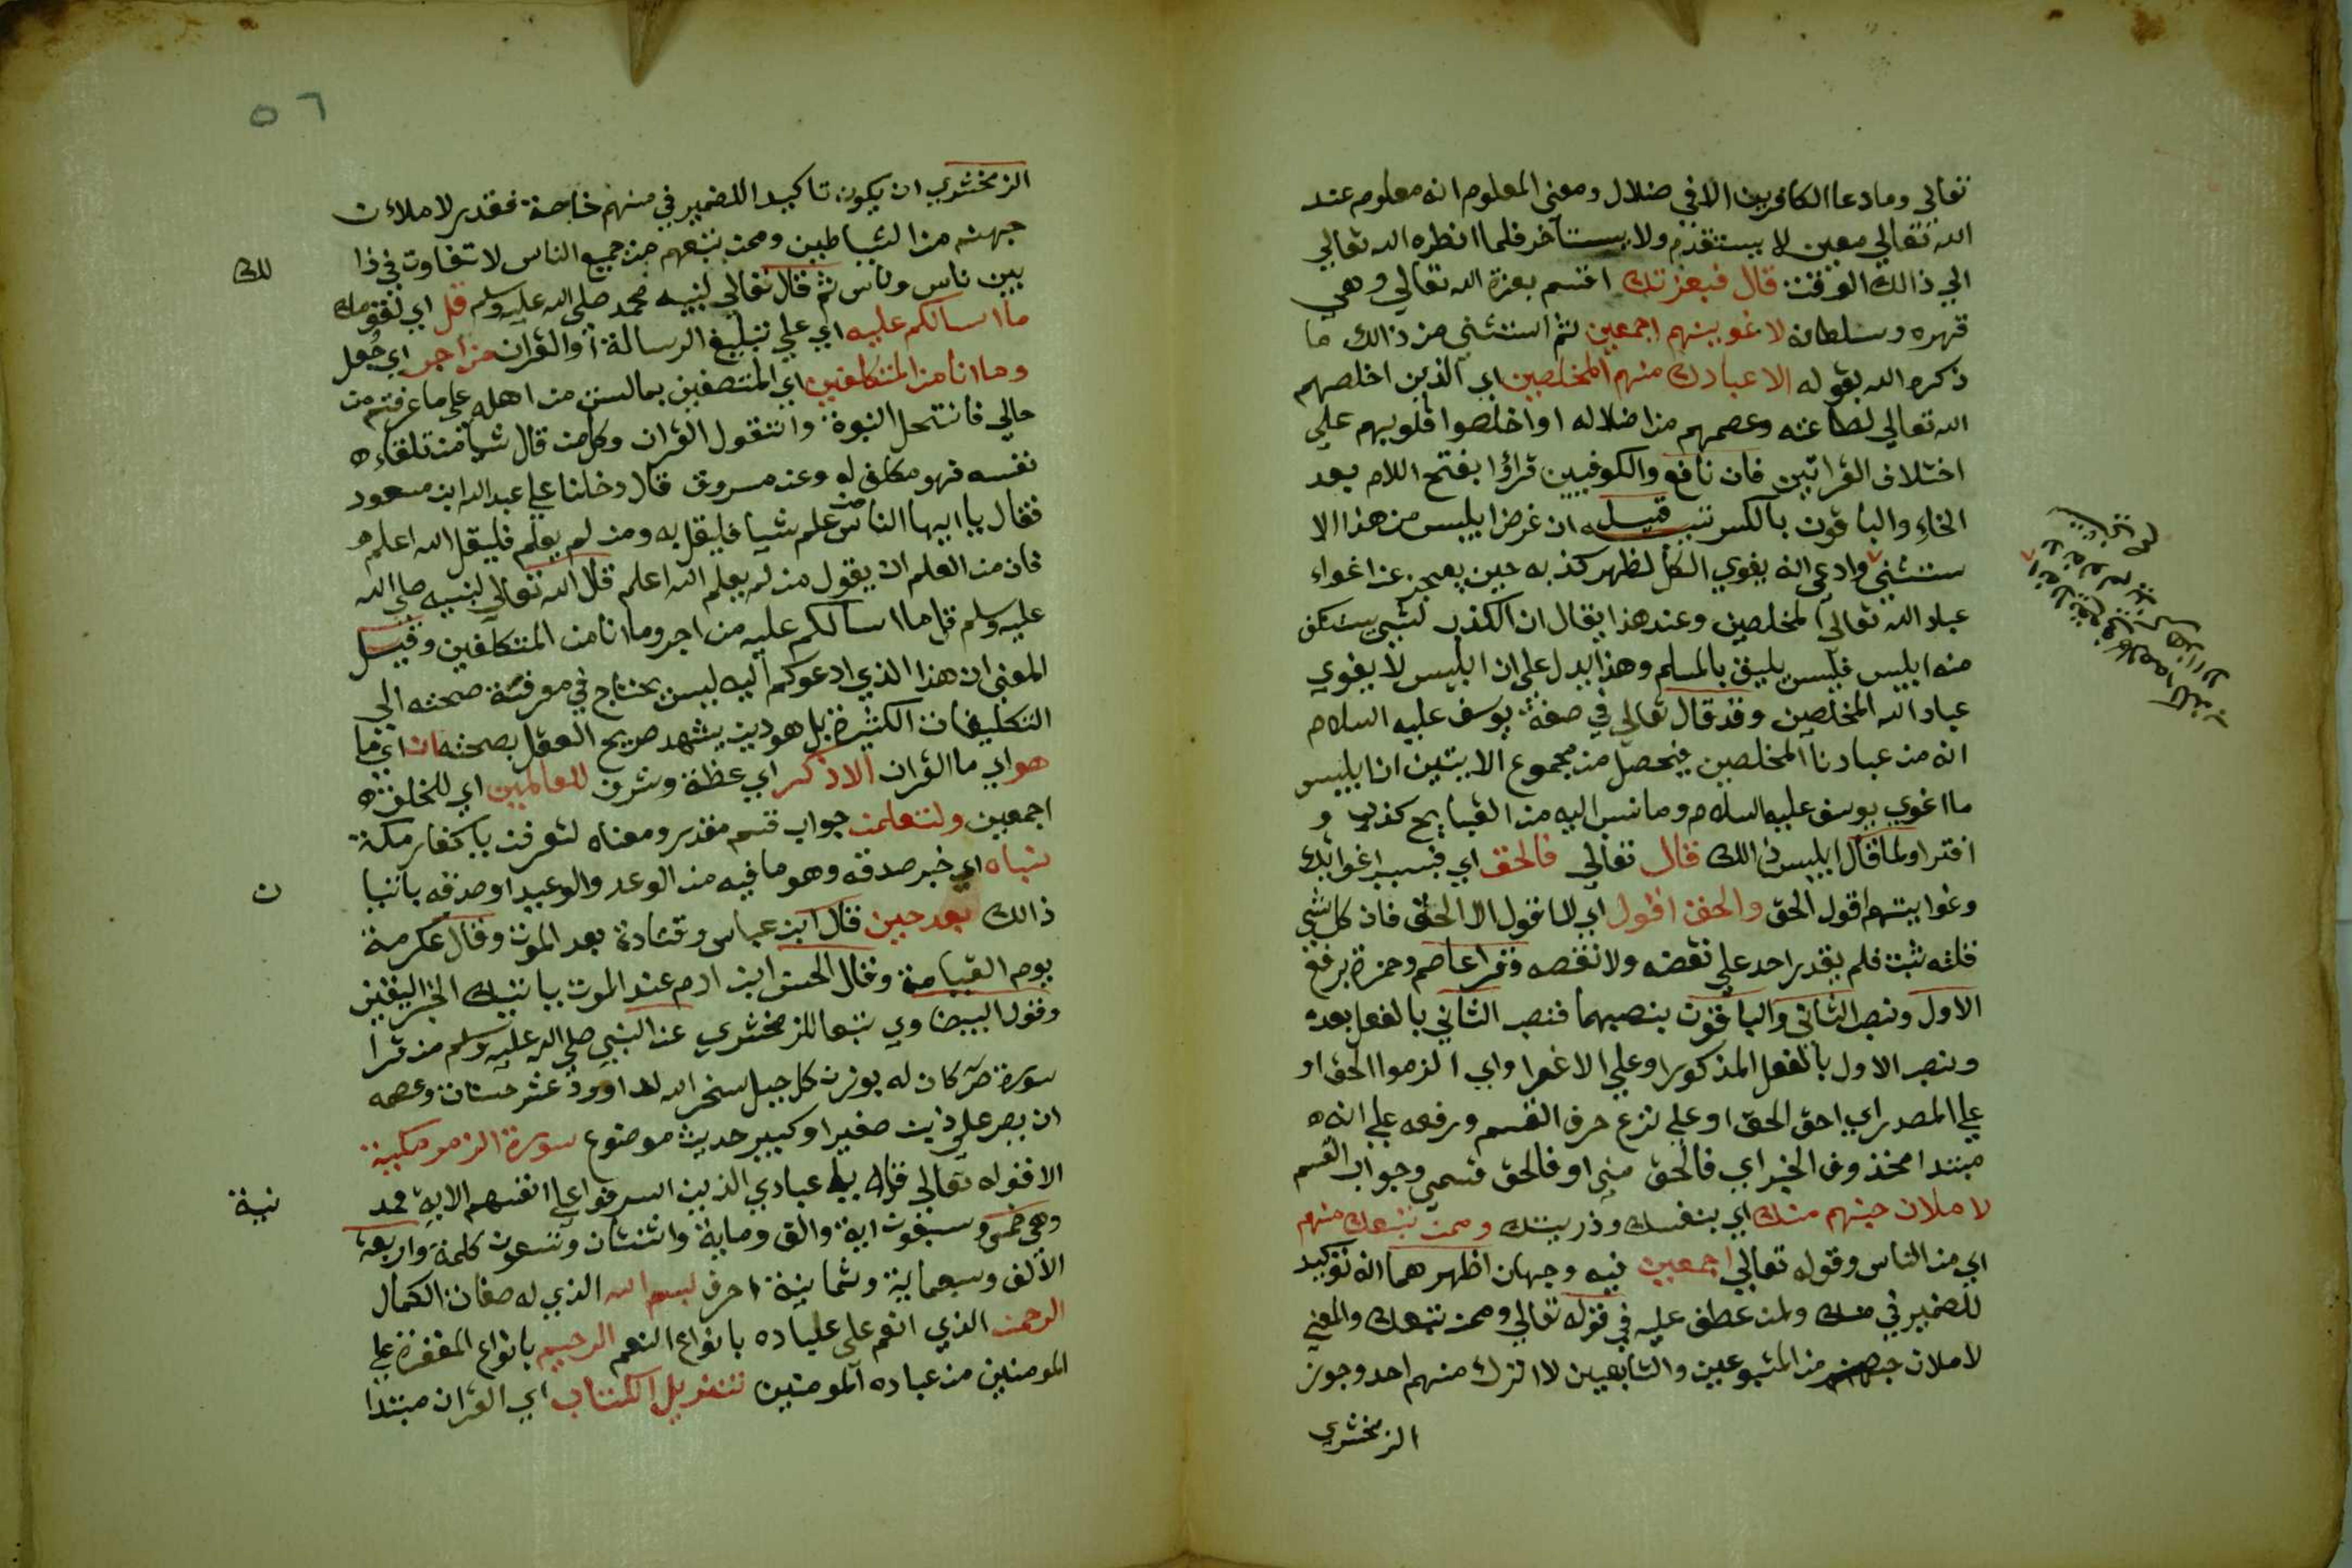 تعالي وما دعا الكافرين الا في ضلال ومعنى المعلوم انه معلوم عند
الله تعالي معين لا يستقدم ولا يستاخر فلما انظره الله تعالي
الي ذالك الوقت قال فبعزتك اقسم بعزة الله تعالي وهي
قهره وسلطانه لاغوينهم اجمعين ثم استثني من ذالك ما
ذكره الله بقوله الا عبادك منهم المخلصين اي الذين اخلصهم
الله تعالي لطاعته وعصمهم من اضلاله او اخلصوا قلوبهم علي
اختلاف القراتين فان نافع والكوفيين قراوا بفتح اللام بعد
الخاء والباقون بالكسر تنبيه قيل ان غرض ابليس من هذا الا
ستثني وادعى انه يغوي الكل لظهر كذبه حين يعجز عن اغواء
عباد الله تعالي المخلصين وعند هذا يقال ان الكذب لشي يستنكف
منه ابليس فليس يليق بالمسلم وهذا يدل على ان ابليس لا يغوي
عباد الله المخلصين وقد قال تعالي في صفة يوسف عليه السلام
انه من عبادنا المخلصين فيحصل من مجموع الايتين ان ابليس
ما اغوي يوسف عليه السلام وما نسب اليه من القبايح كذب و
افترا ولما قال ابليس ذالك قال تعالي فالحق اي فبسبب اغوائك
وغوايتهم اقول الحق والحق اقول اي لا اقول الا الحق فان كل شي
قلته ثبت فلم يقدر احد علي نقضه ولا نقصه وقرا عاصم وحمزة برفع
الاول ونصب الثاني والباقون بنصبهما فنصب الثاني بالفعل بعده
ونصب الاول بالفعل المذكور او علي الاغرا واي الزموا الحق او
علي المصدر اي احق الحق او علي نزع حرف القسم ورفعه علي انه
مبتدا محذوف الخبر اي فالحق مني او فالحق قسمي وجواب القسم
لاملان جهنم منك اي بنفسك وذريتك وممن تبعك منهم
اي من الناس وقوله تعالي اجمعين فيه وجهان اظهرهما انه توكيد
للضمير في منك ولمن عطف عليه في قوله تعالي وممن تبعك والمعني
لاملان جهنم من المتبوعين والتابعين لا اترك منهم احد وجوز
الزمخشري
٥٦
الزمخشري ان يكون تاكيدا للضمير في منهم خاصة فقدر لاملان
جهنم من الشياطين وممن تبعهم من جميع الناس لا تفاوت في ذا
لك
بين ناس وناس ثم قال تعالي لنبيه محمد صلى الله عليه وسلم قل اي لقومك
ما اسالكم عليه اي علي تبليغ الرسالة او القران من اجر اي جعل
وما انا من المتكلفين اي المتصفين بما لست من اهله علي ما عرفتم من
حالي فانتحل النبوة واتقول القران وكل من قال شيا من تلقاء
نفسه فهو مكلف له وعن مسروق قال دخلنا علي عبد الله ابن مسعود
فقال يا ايها الناس من علم شيا فليقل به ومن لم يعلم فليقل الله اعلم
فان من العلم ان يقول من لم يعلم الله اعلم قال الله تعالي لنبيه صلي الله
عليه وسلم قل ما اسالكم عليه من اجر وما انا من المتكلفين وقيل
المعني ان هذا الذي ادعوكم اليه ليس يحتاج في معرفة صحته الي
التكليفات الكثيرة بل هو دين يشهد صريح العقل بصحته ان اي ما
هو اي ما القران الا ذكر اي عظة وشرف للعالمين اي للخلق
اجمعين ولتعلمن جواب قسم مقدر ومعناه لتعرفن يا كفار مكة
نباه اي خبر صدقه وهو ما فيه من الوعد والوعيد او صدقه باتيا
ن
ذالك بعد حين قال ابن عباس وقتادة بعد الموت وقال عكرمة
يوم القيامة وقال الحسن ابن ادم عند الموت ياتيك الخبر اليقين
وقول البيضاوي تبعا للزمخشري عن النبي صلي الله عليه وسلم من قرا
سورة ص كان له بوزن كل جبل سخر الله لداوود عشر حسنات وعصمه
ان يصر علي ذنب صغير او كبير حديث موضوع سورة الزمر مكية
الا قوله تعالي قل يا عبادي الذين اسرفوا علي انفسهم الاية فمد
نية
وهي خمس وسبعون اية والف وماية واثنتان وتسعون كلمة واربعة
الاف وسبعماية وثمانية احرف بسم الله الذي له صفات الكمال
الرحمن الذي انعم علي عباده بانواع النعم الرحيم بانواع المغفرة علي
المومنين من عباده المومنين تنزيل الكتاب اي القران مبتدا